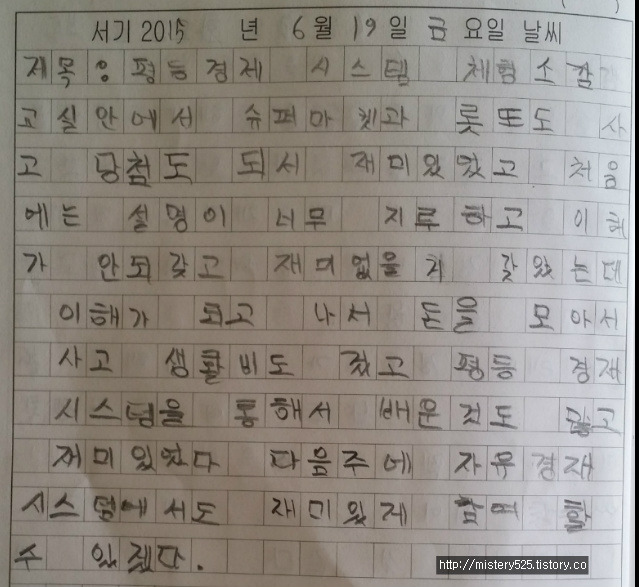 서기 2015 년 6월 19일 금요일 날씨
제목: 평등경제 시스템 체험소감
고실안에서 슈퍼마켓과 롯또도 사
고 당첨도 되서 재미있었고 처음
에는 설명이 너무 지루하고 이해
가 안되갖고 재미없을지 같았는데
이해가 되고 나서 돈을 모아서
사고 생활비도 갔고 평등 경재
시스템을 통해서 배운것도 많고
재미있었다 다음주에 자유경재
시스템에서도 재미있게 참여 할
수 있겠다.
http://mistery525.tistory.co